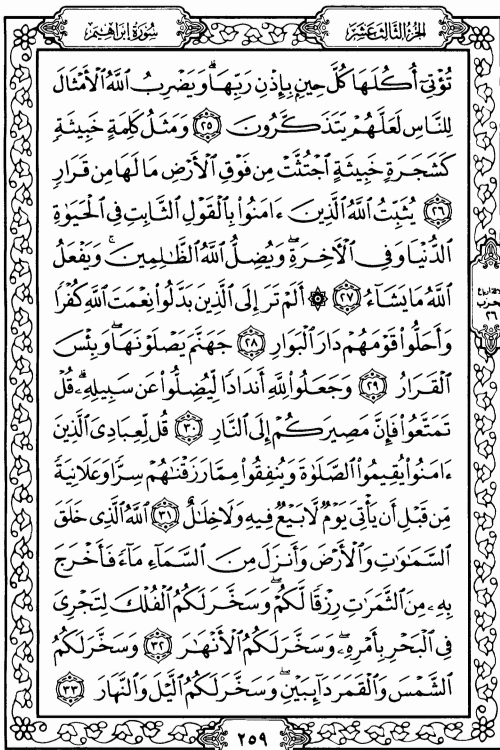 الجزء الثالث عشر
سورة إبراهيم
تُؤْتِىٓ أُكُلَهَا كُلَّ حِينٍۭ بِإِذْنِ رَبِّهَا ۗ وَيَضْرِبُ ٱللَّهُ ٱلْأَمْثَالَ
لِلنَّاسِ لَعَلَّهُمْ يَتَذَكَّرُونَ ٢٥ وَمَثَلُ كَلِمَةٍ خَبِيثَةٍ
كَشَجَرَةٍ خَبِيثَةٍ ٱجْتُثَّتْ مِن فَوْقِ ٱلْأَرْضِ مَا لَهَا مِن قَرَارٍ
٢٦ يُثَبِّتُ ٱللَّهُ ٱلَّذِينَ ءَامَنُوا۟ بِٱلْقَوْلِ ٱلثَّابِتِ فِى ٱلْحَيَوٰةِ
ٱلدُّنْيَا وَفِى ٱلْءَاخِرَةِ ۖ وَيُضِلُّ ٱللَّهُ ٱلظَّٰلِمِينَ ۚ وَيَفْعَلُ
ٱللَّهُ مَا يَشَآءُ ٢٧ ۞ أَلَمْ تَرَ إِلَى ٱلَّذِينَ بَدَّلُوا۟ نِعْمَتَ ٱللَّهِ كُفْرًا
وَأَحَلُّوا۟ قَوْمَهُمْ دَارَ ٱلْبَوَارِ ٢٨ جَهَنَّمَ يَصْلَوْنَهَا ۖ وَبِئْسَ
ٱلْقَرَارُ ٢٩ وَجَعَلُوا۟ لِلَّهِ أَندَادًا لِّيُضِلُّوا۟ عَن سَبِيلِهِۦ ۗ قُلْ
تَمَتَّعُوا۟ فَإِنَّ مَصِيرَكُمْ إِلَى ٱلنَّارِ ٣٠ قُل لِّعِبَادِىَ ٱلَّذِينَ
ءَامَنُوا۟ يُقِيمُوا۟ ٱلصَّلَوٰةَ وَيُنفِقُوا۟ مِمَّا رَزَقْنَٰهُمْ سِرًّا وَعَلَانِيَةً
مِّن قَبْلِ أَن يَأْتِىَ يَوْمٌ لَّا بَيْعٌ فِيهِ وَلَا خِلَٰلٌ ٣١ ٱللَّهُ ٱلَّذِى خَلَقَ
ٱلسَّمَٰوَٰتِ وَٱلْأَرْضَ وَأَنزَلَ مِنَ ٱلسَّمَآءِ مَآءً فَأَخْرَجَ
بِهِۦ مِنَ ٱلثَّمَرَٰتِ رِزْقًا لَّكُمْ ۖ وَسَخَّرَ لَكُمُ ٱلْفُلْكَ لِتَجْرِىَ
فِى ٱلْبَحْرِ بِأَمْرِهِۦ ۖ وَسَخَّرَ لَكُمُ ٱلْأَنْهَٰرَ ٣٢ وَسَخَّرَ لَكُمُ
ٱلشَّمْسَ وَٱلْقَمَرَ دَآئِبَيْنِ ۖ وَسَخَّرَ لَكُمُ ٱلَّيْلَ وَٱلنَّهَارَ ٣٣
الحزب
٢٦
٢٥٩